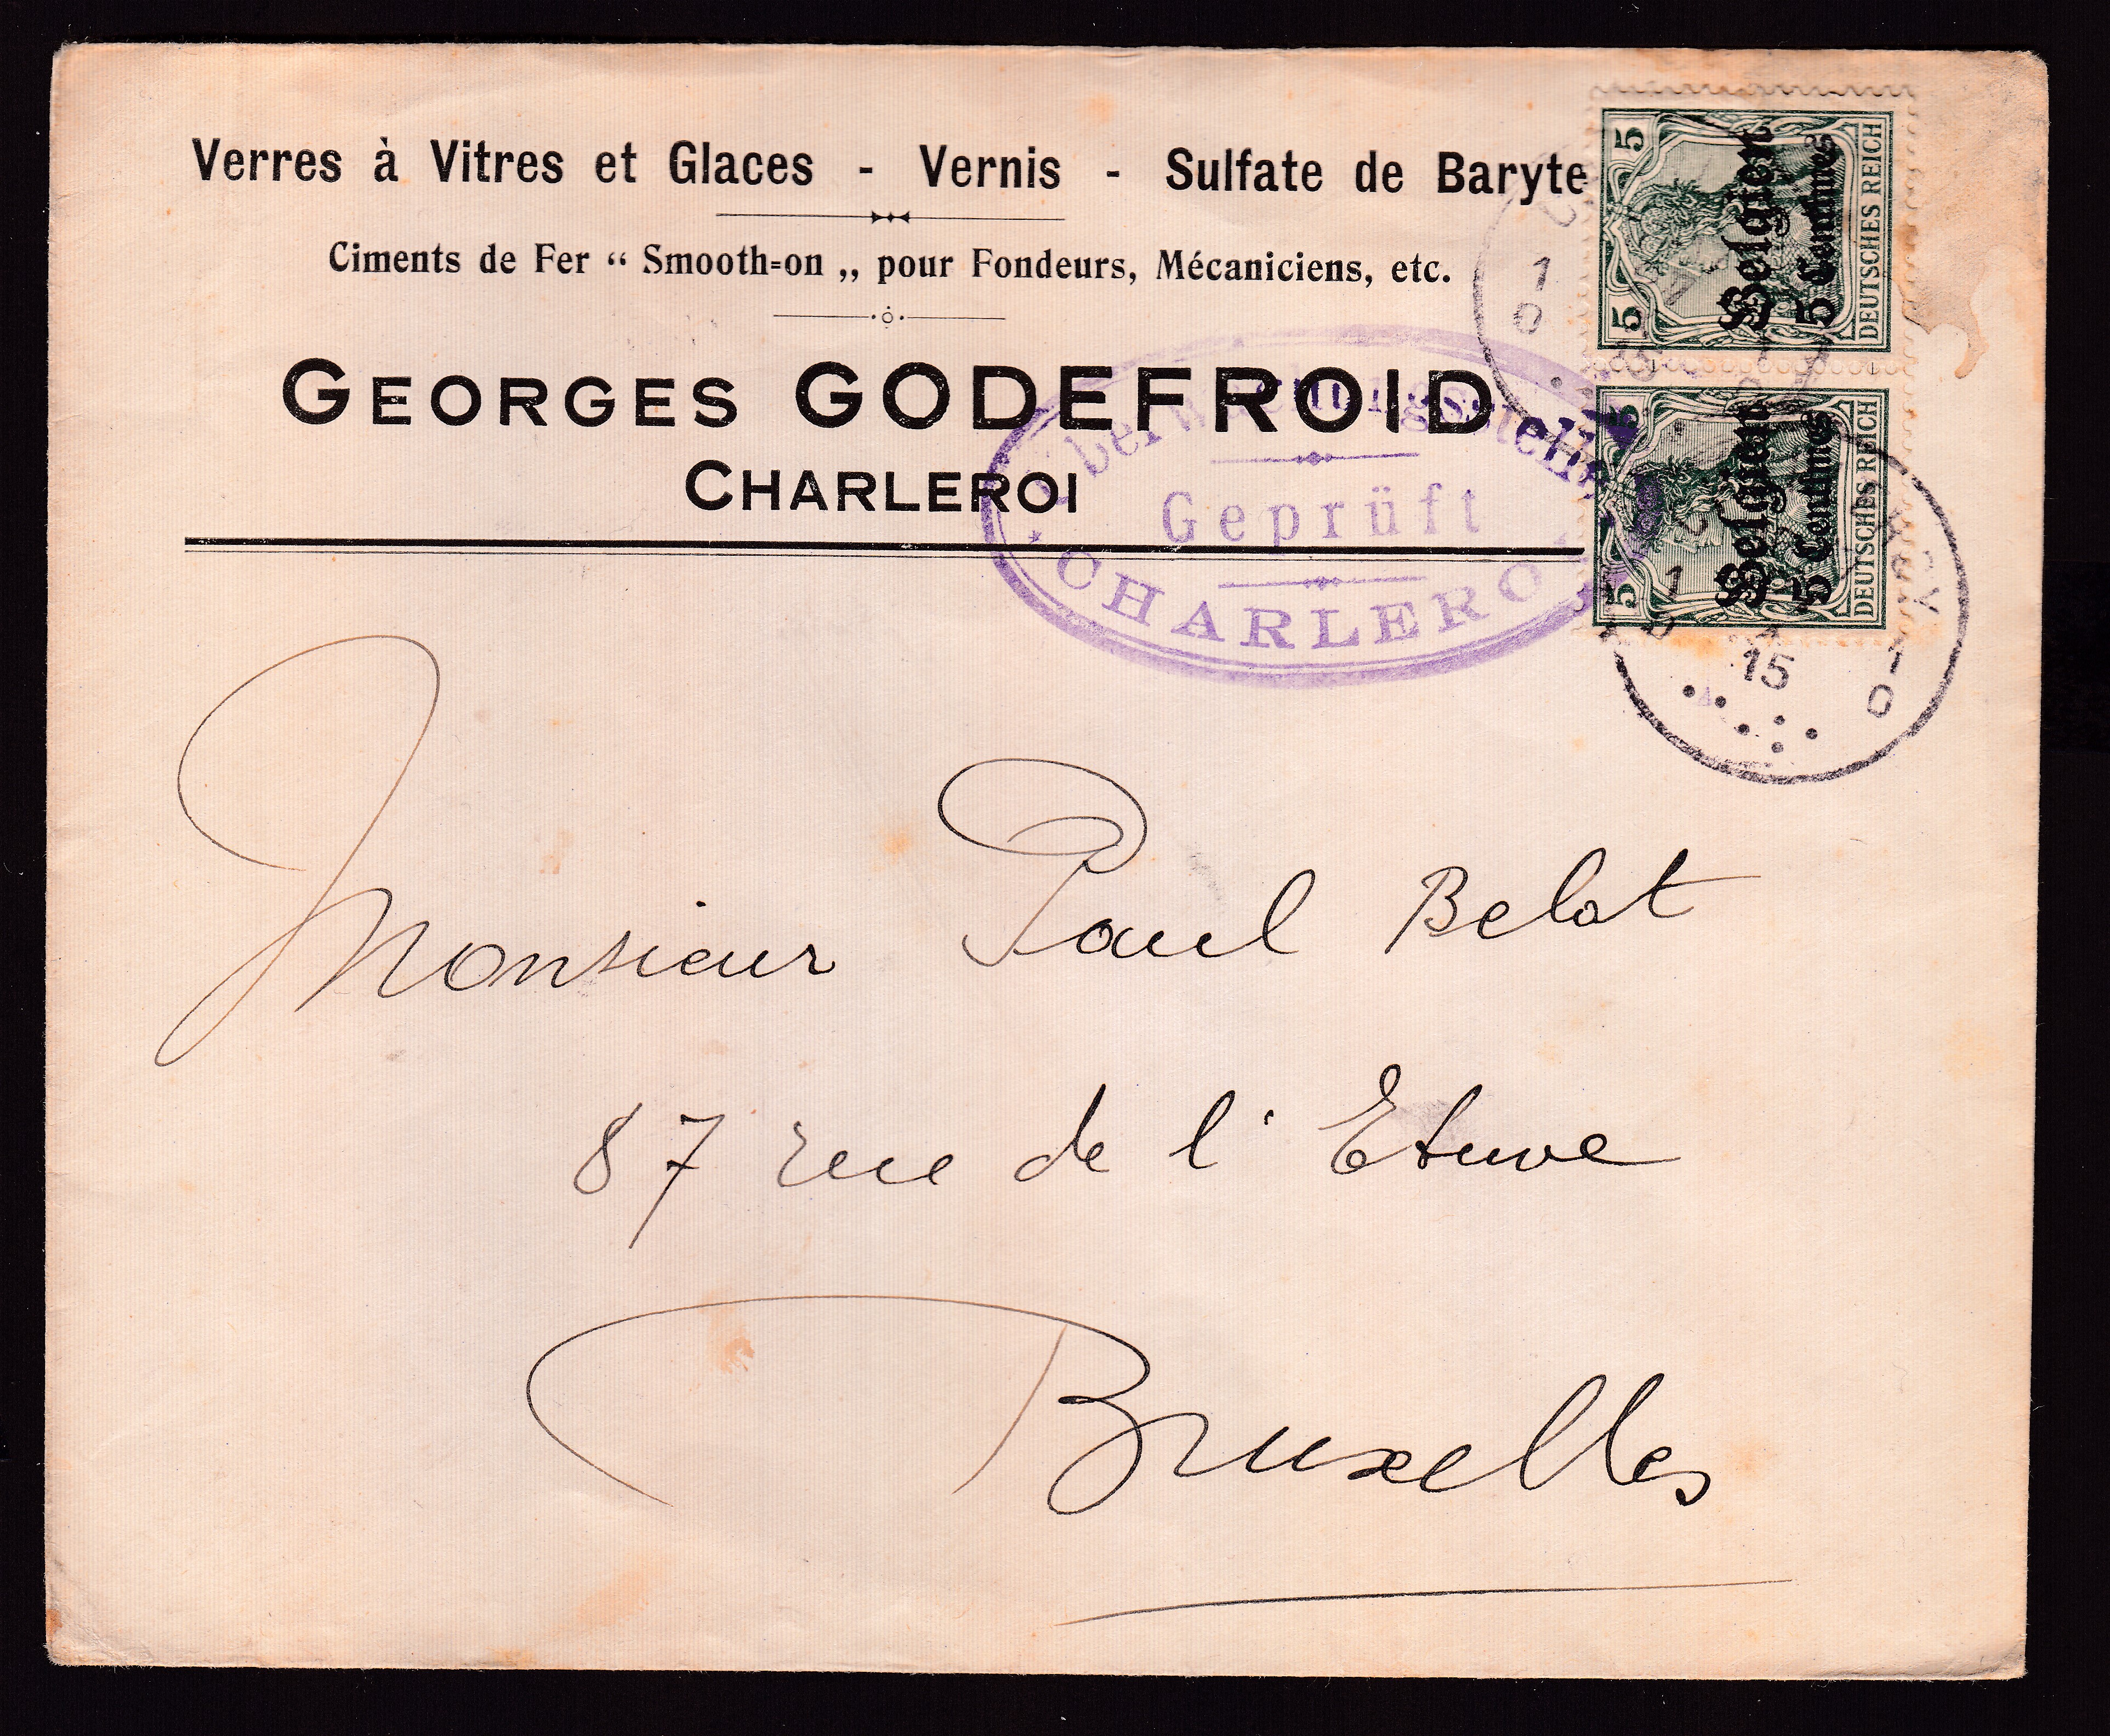 Verres à Vitres et Glaces - Vernis - Sulfate de Baryte
Ciments de Fer “ Smooth=on „ pour Fondeurs, Mécaniciens, etc.
GEORGES GODEFROID
CHARLEROI
Überwachungsstelle
Geprüft
CHARLEROI
5 5
Belgien
5 Centimes
DEUTSCHES REICH
5 5
Belgien
5 Centimes
DEUTSCHES REICH
15
Monsieur Paul Belot
87 rue de l'Etuve
Bruxelles